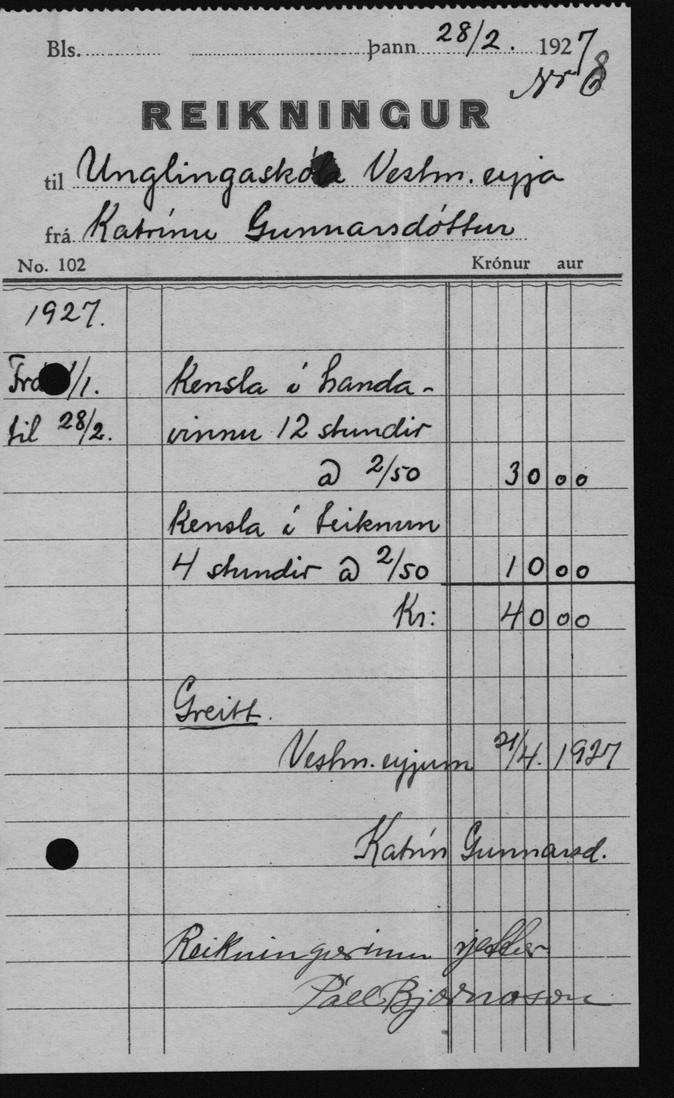 Bls. þann 28/2. 1927
Nr 8
REIKNINGUR
til Unglingaskóla Vestm.eyja
frá Katrínu Gunnarsdóttur
No. 102 Krónur aur
1927.
Frá 1/1. Kensla í handa-
til 28/2. vinnu 12 stundir
@ 2/50 30 00
Kensla í teiknun
4 stundir @ 2/50 10 00
Kr: 40 00
Greitt.
Vestm.eyjum 21/4. 1927
Katrín Gunnarsd.
Reikningurinn rjettur
Páll Bjarnason